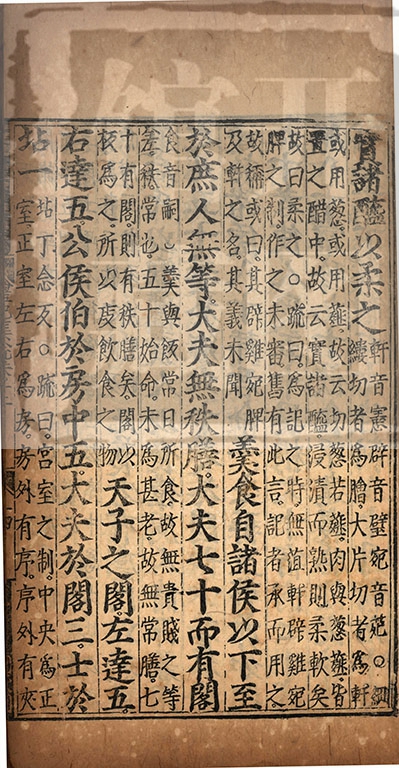 實諸醯以柔之軒音憲辟音璧宛音苑○細
縷切者為膾大片切者為軒
或用葱或用薤故云切葱若薤肉與葱薤皆
置之醋中故云實諸醯浸漬而熟則柔軟矣
故曰柔之○疏曰為記之時無菹軒辟雞宛
脾之制作之未審舊有此言記者承而用之
故稱或曰其辟雞宛脾
及軒之名其義未聞羹食自諸侯以下至
於庶人無等大夫無秩膳大夫七十而有閣
食音嗣○羹與飯常日所食故無貴賤之等
差秩常也五十始命未為甚老故無常膳七
十有閣則有秩膳矣閣以
板為之所以庋飲食之物天子之閣左達五
右達五公侯伯於房中五大夫於閣三士於
坫一坫丁念反○疏曰宮室之制中央為正
室正室左右為房房外有序序外有夾